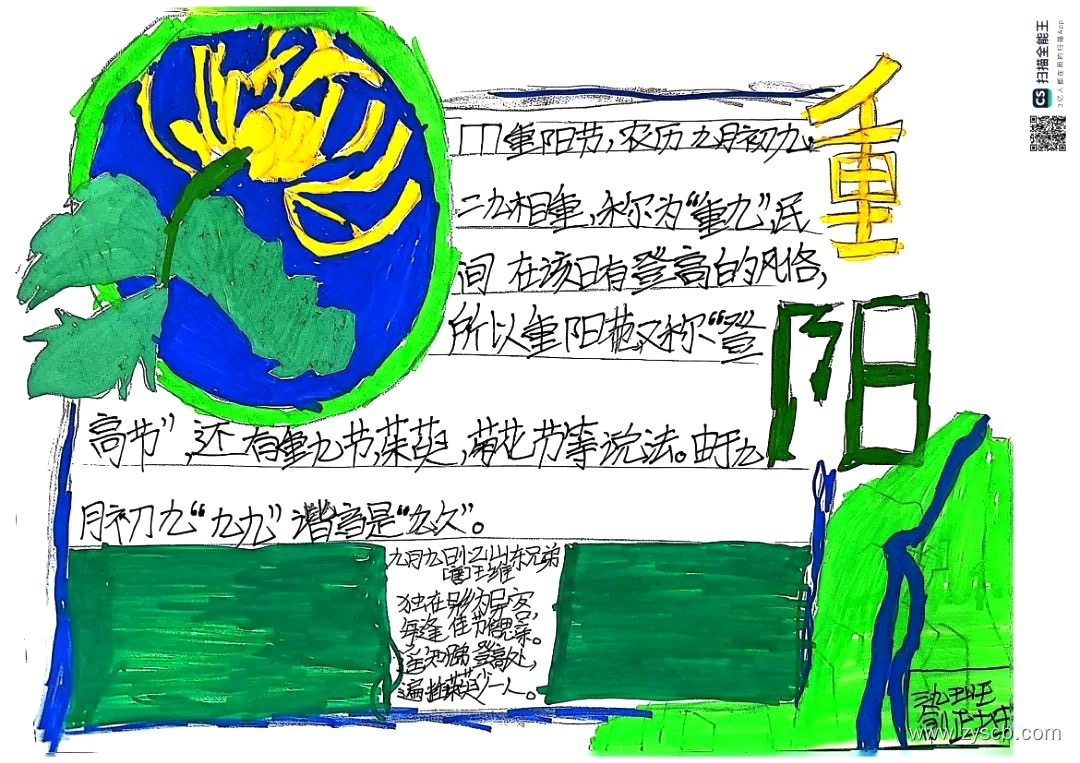 重阳
重阳节,农历九月初九。
二九相重,称为“重九”,民
间在该日有登高的风俗,
所以重阳节又称“登
高节”,还有重九节,茱萸,菊花节等说法。由于九
月初九“九九”谐音是“久久”。
九月九日忆山东兄弟
[唐]王维
独在异乡为异客,
每逢佳节倍思亲。
遥知兄弟登高处,
遍插茱萸少一人。
CS 扫描全能王
3亿人都在用的扫描App
www.zyscb.com